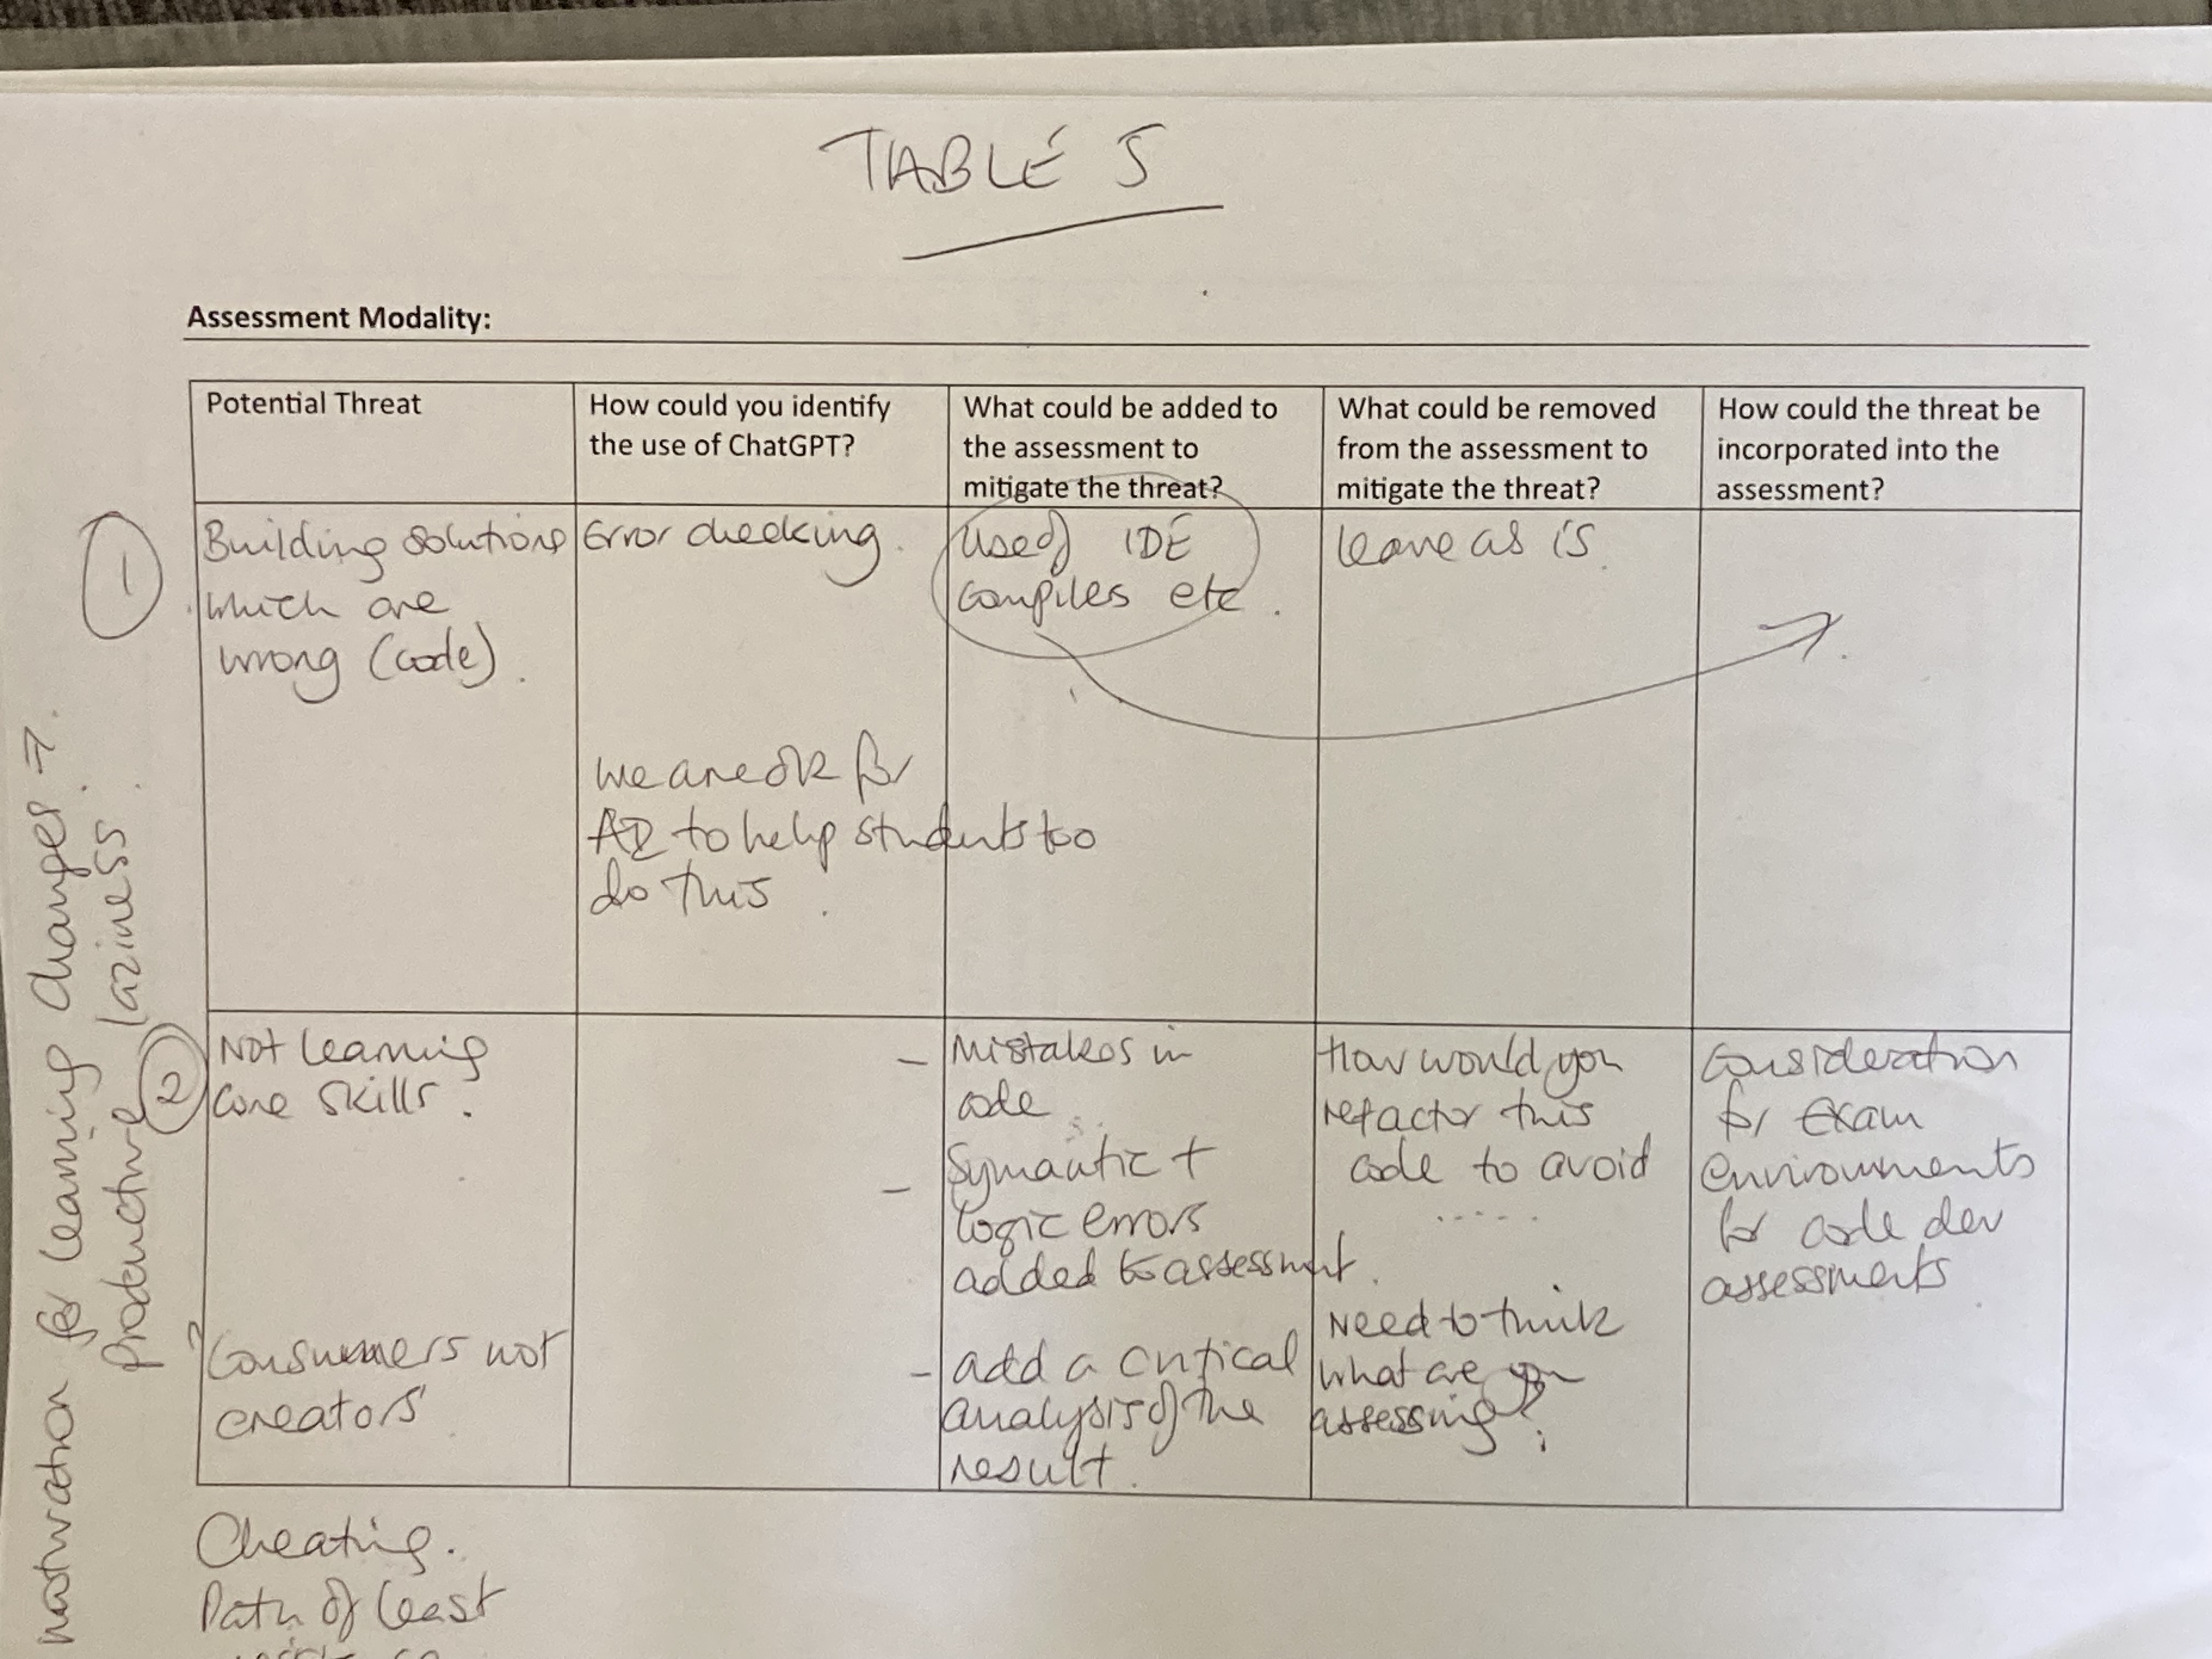 TABLE 5
Assessment Modality:
Potential Threat
How could you identify
the use of ChatGPT?
What could be added to
the assessment to
mitigate the threat?
What could be removed
from the assessment to
mitigate the threat?
How could the threat be
incorporated into the
assessment?
1
Building solutions
which are
wrong (code).
Error checking.
We are OK for
AI to help students too
do this.
Use of IDE
compiles etc.
leave as is.
2
Not learning
core skills.
Consumers not
creators
- Mistakes in
code
- Symantic +
logic errors
added to assessment.
- add a critical
analysis of the
result.
How would you
refactor this
code to avoid
.....
Need to think
what are you
assessing?
Consideration
for Exam
environments
for code dev
assessments
motivation for learning changes →
Productive laziness
Cheating.
Path of least